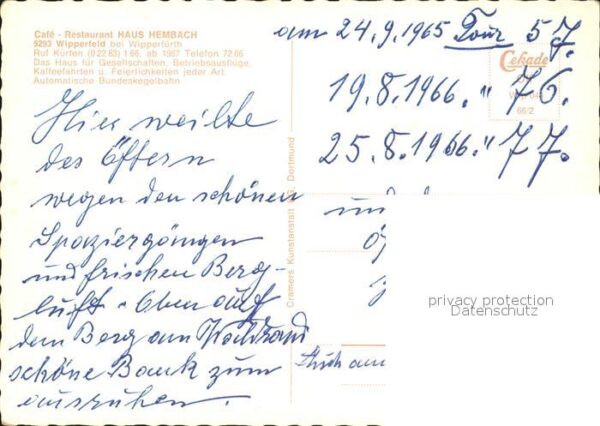 Café - Restaurant HAUS HEMBACH
5293 Wipperfeld bei Wipperfürth
Ruf Kürten (0 22 83) 1 66, ab 1967 Telefon 72 66
Das Haus für Gesellschaften, Betriebsausflüge,
Kaffeefahrten u. Feierlichkeiten jeder Art
Automatische Bundeskegelbahn
Hier weilte
des Öftern
wegen den schönen
Spaziergängen
und frischen Berg-
luft. Oben auf
dem Berg am Waldrand
schöne Bank zum
ausruhen.
Cramers Kunstanstalt KG. Dortmund
am 24.9.1965 Tour 57.
19.8.1966. " 76.
25.8.1966. " 77.
und
Cekade
66/2
privacy protection
Datenschutz
am